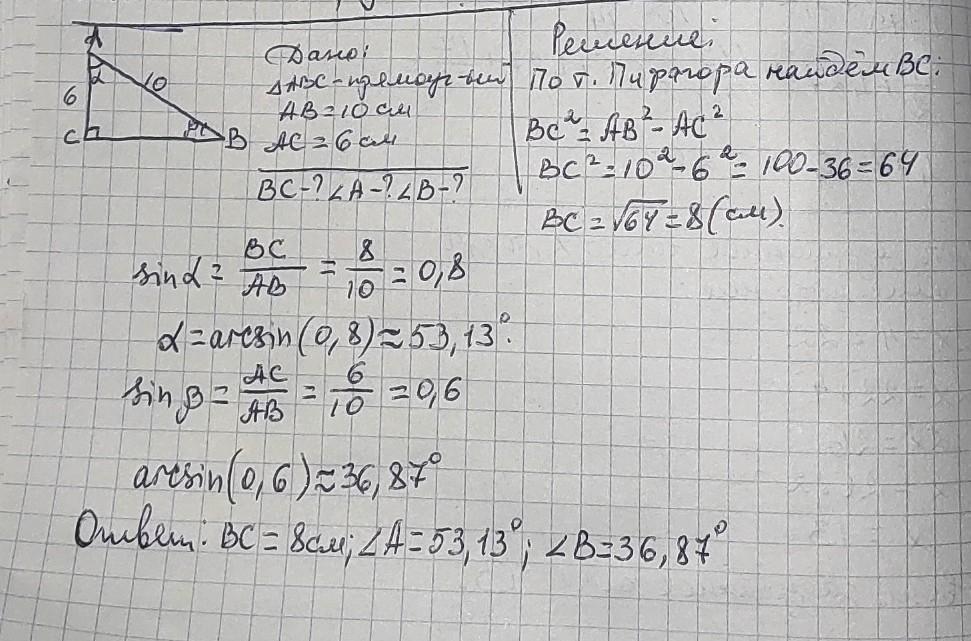 A
α
10
6
C
B
Дано:
△ABC-прямоуг-ый
AB=10 см
AC=6 см
BC-? ∠A-? ∠B-?
Решение:
По т. Пифагора найдём BC:
BC²=AB²-AC²
BC²=10²-6²=100-36=64
BC=√64=8(см).
sinα=BC/AB=8/10=0,8
α=arcsin(0,8)≈53,13°.
sinβ=AC/AB=6/10=0,6
arcsin(0,6)≈36,87°
Ответ: BC=8см; ∠A=53,13°; ∠B=36,87°